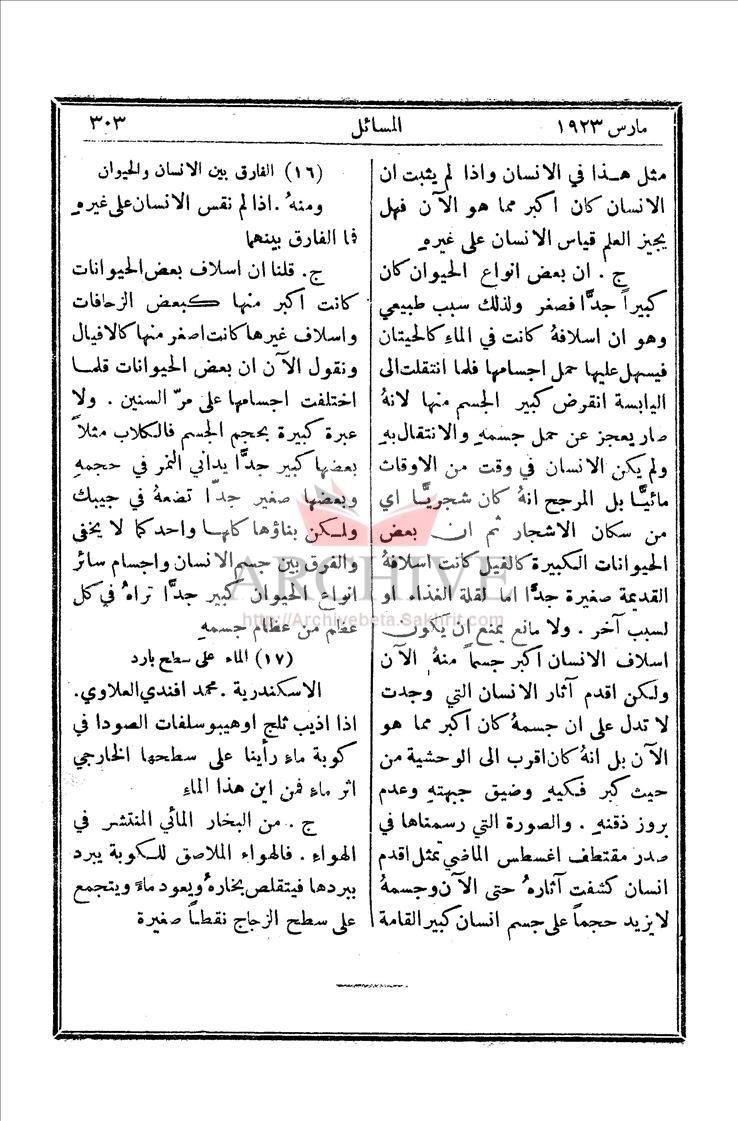 مارس ١٩٢٣ المسائل ٣٠٣
مثل هـذا في الانسان واذا لم يثبت ان
الانسان كان اكبر مما هو الآن فهل
يجيز العلم قياس الانسان على غيرهِ
ج . ان بعض انواع الحيوان كان
كبيراً جدًّا فصغر ولذلك سبب طبيعي
وهو ان اسلافهُ كانت في الماءِ كالحيتان
فيسهل عليها حمل اجسامها فلما انتقلت الى
اليابسة انقرض كبير الجسم منها لانهُ
صار يعجز عن حمل جسمهِ والانتقال بهِ
ولم يكن الانسان في وقت من الاوقات
مائيًّا بل المرجح انهُ كان شجريًّا اي
من سكان الاشجار ثم ان بعض
الحيوانات الكبيرة كالفيل كانت اسلافهُ
القديمة صغيرة جدًّا اما لقلة الغذاء او
لسبب آخر . ولا مانع يمنع ان يكون
اسلاف الانسان اكبر جسماً منهُ الآن
ولكن اقدم آثار الانسان التي وجدت
لا تدل على ان جسمهُ كان اكبر مما هو
الآن بل انهُ كان اقرب الى الوحشية من
حيث كبر فكيهِ وضيق جبهتهِ وعدم
بروز ذقنهِ . والصورة التي رسمناها في
صدر مقتطف اغسطس الماضي تمثل اقدم
انسان كشفت آثارهُ حتى الآن وجسمهُ
لا يزيد حجماً على جسم انسان كبير القامة
(١٦) الفارق بين الانسان والحيوان
ومنهُ . اذا لم نقس الانسان على غيرهِ
فما الفارق بينهما
ج. قلنا ان اسلاف بعض الحيوانات
كانت اكبر منها كبعض الزحافات
واسلاف غيرها كانت اصغر منها كالافيال
ونقول الآن ان بعض الحيوانات قلما
اختلفت اجسامها على مرّ السنين . ولا
عبرة كبيرة بحجم الجسم فالكلاب مثلاً
بعضها كبير جدًّا يداني النمر في حجمهِ
وبعضها صغير جدًّا تضعهُ في جيبك
ولكن بناؤها كلها واحد كما لا يخفى
والفرق بين جسم الانسان واجسام سائر
انواع الحيوان كبير جدًّا تراهُ في كل
عظم من عظام جسمهِ
(١٧) الماء على سطح بارد
الاسكندرية . محمد افندي العلاوي.
اذا اذيب ثلج او هيبوسلفات الصودا في
كوبة ماءٍ رأينا على سطحها الخارجي
اثر ماءٍ فمن اين هذا الماءِ
ج . من البخار المائي المنتشر في
الهواءِ . فالهواء الملاصق للكوبة يبرد
ببردها فيتقلص بخارهُ ويعود ماءً ويتجمع
على سطح الزجاج نقطاً صغيرة
ARCHIVE
http://Archivebeta.Sakhrit.com